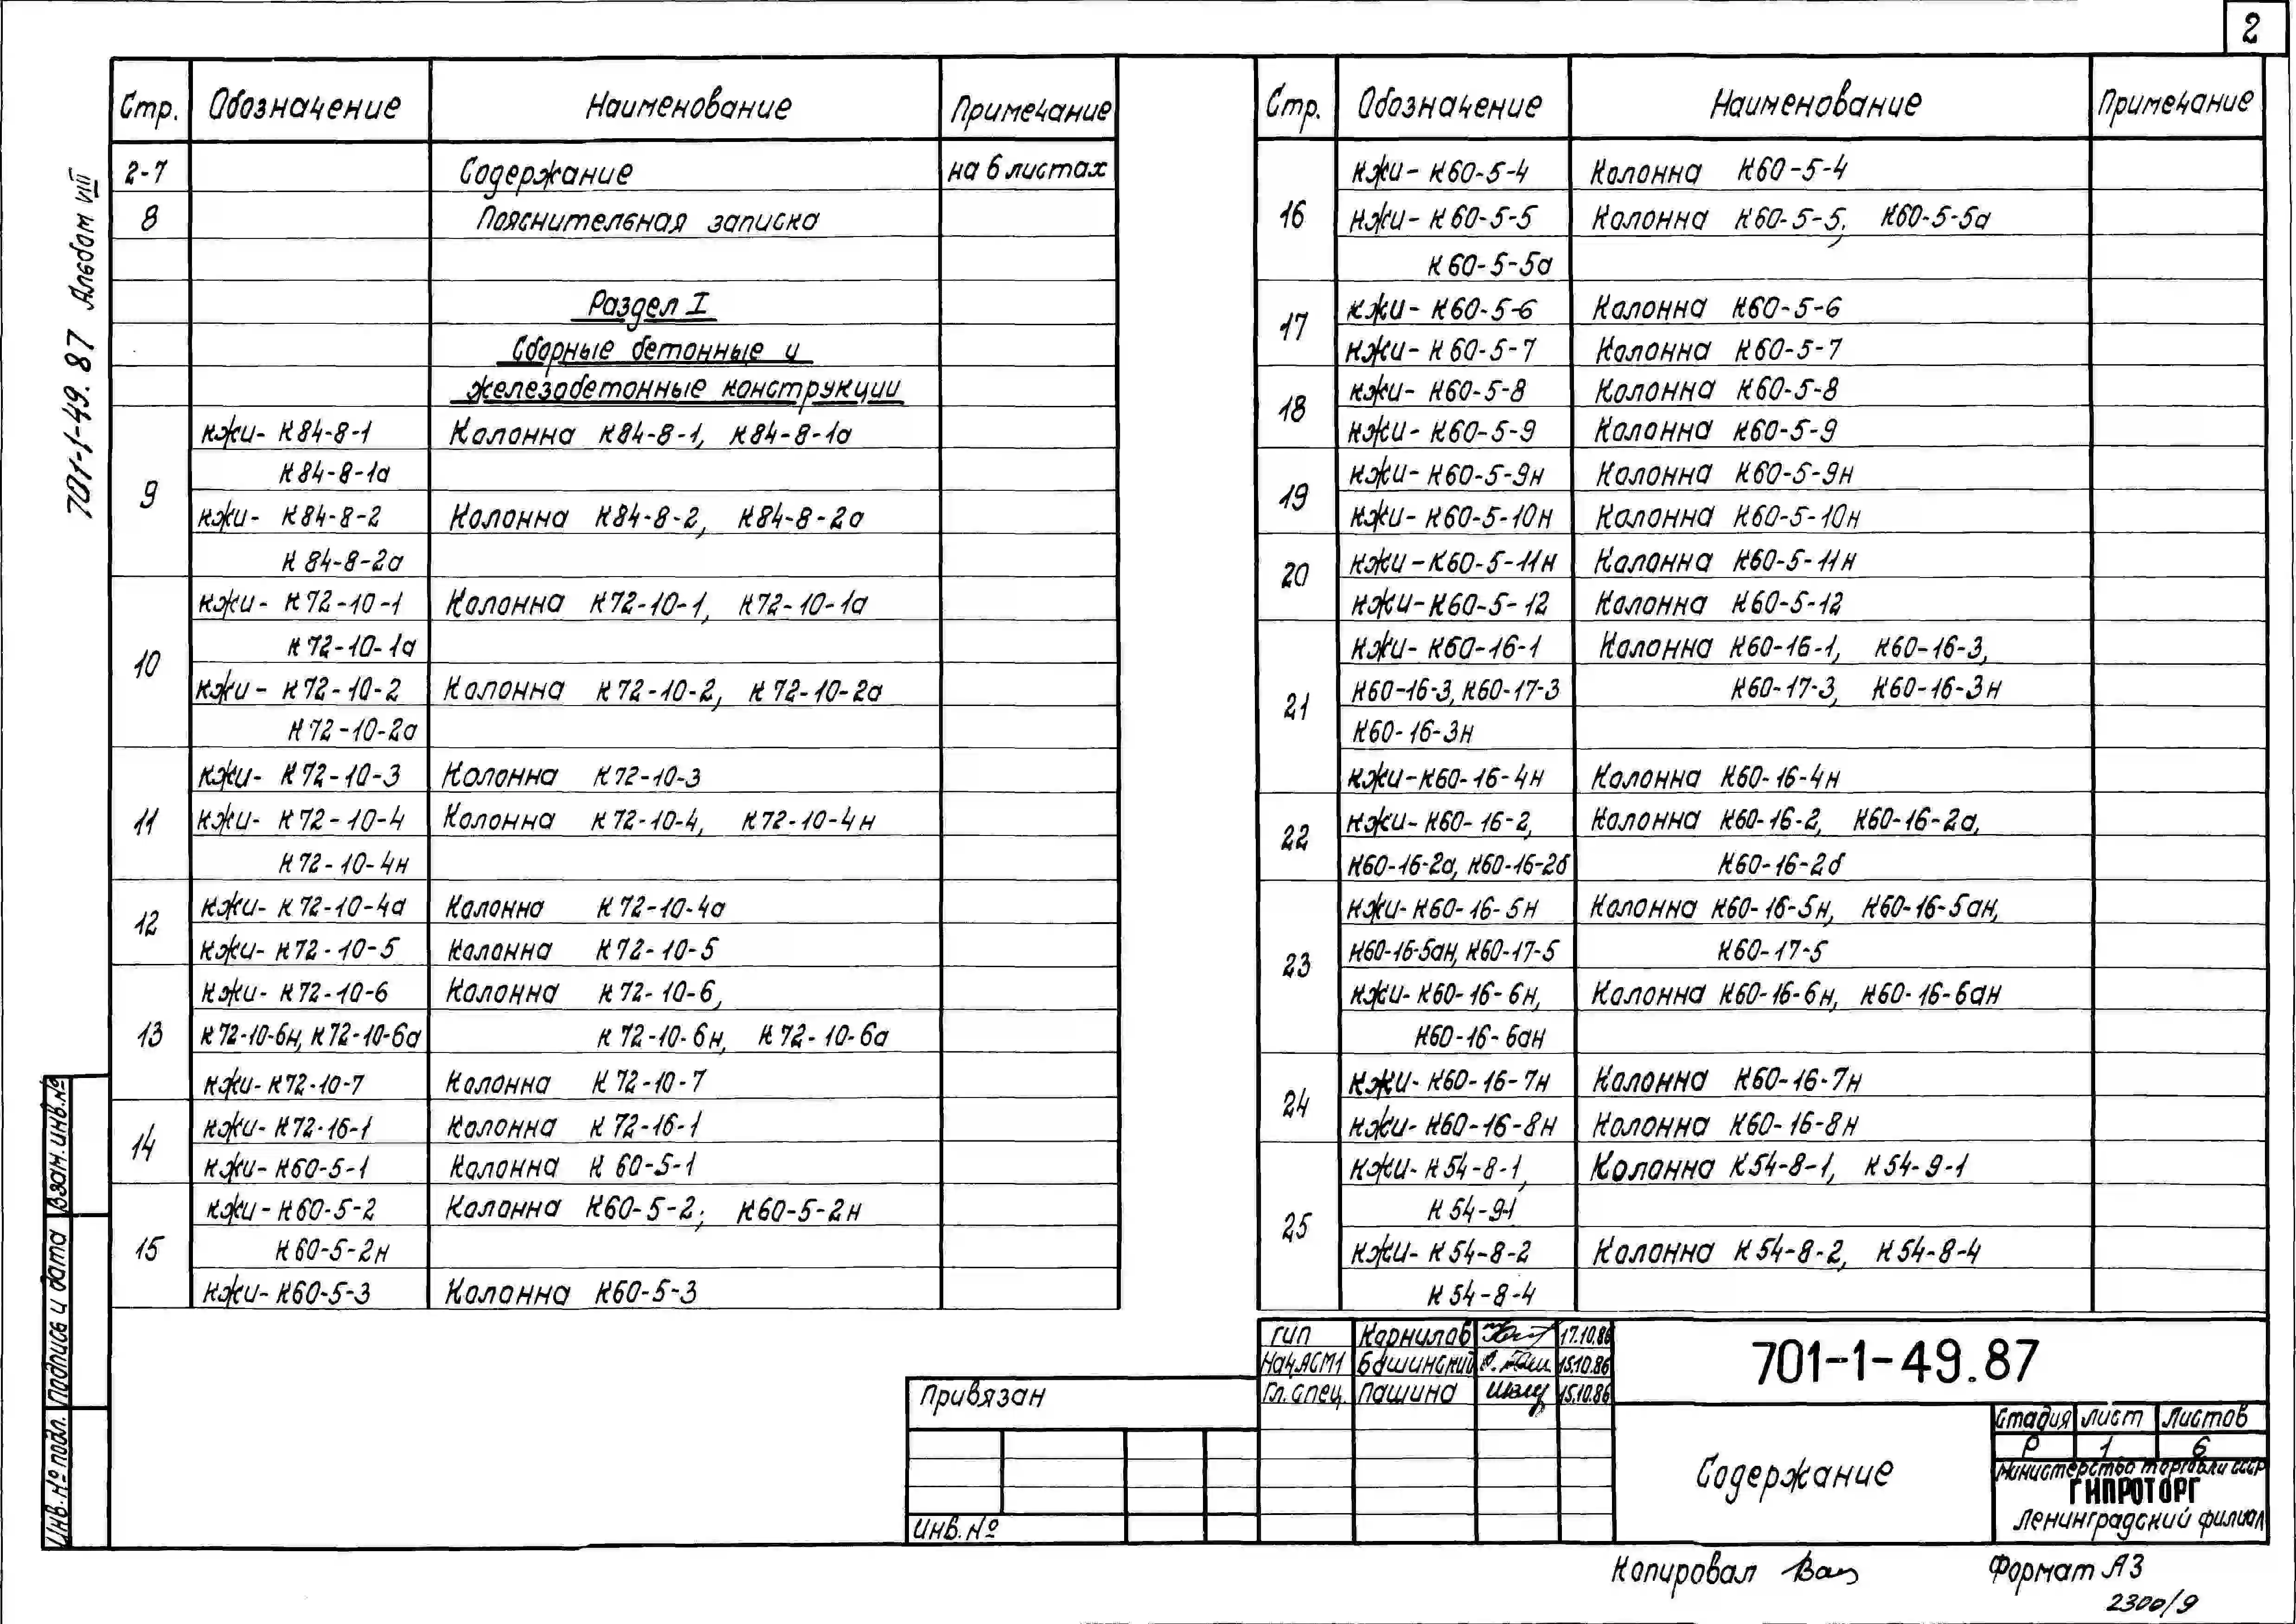 2
701-1-49.87 Альбом VIII
Стр. Обозначение Наименование Примечание
2-7 Содержание на 6 листах
8 Пояснительная записка
Раздел I
Сборные бетонные и
железобетонные конструкции
9 КЖИ- К84-8-1 Колонна К84-8-1, К84-8-1а
К84-8-1а
КЖИ- К84-8-2 Колонна К84-8-2, К84-8-2а
К84-8-2а
10 КЖИ- К72-10-1 Колонна К72-10-1, К72-10-1а
К72-10-1а
КЖИ- К72-10-2 Колонна К72-10-2, К72-10-2а
К72-10-2а
11 КЖИ- К72-10-3 Колонна К72-10-3
КЖИ- К72-10-4 Колонна К72-10-4, К72-10-4н
К72-10-4н
12 КЖИ- К72-10-4а Колонна К72-10-4а
КЖИ- К72-10-5 Колонна К72-10-5
13 КЖИ- К72-10-6 Колонна К72-10-6,
К72-10-6н, К72-10-6а К72-10-6н, К72-10-6а
КЖИ- К72-10-7 Колонна К72-10-7
14 КЖИ- К72-16-1 Колонна К72-16-1
КЖИ- К60-5-1 Колонна К60-5-1
15 КЖИ- К60-5-2 Колонна К60-5-2; К60-5-2н
К60-5-2н
КЖИ- К60-5-3 Колонна К60-5-3
Стр. Обозначение Наименование Примечание
16 КЖИ- К60-5-4 Колонна К60-5-4
КЖИ- К60-5-5 Колонна К60-5-5; К60-5-5а
К60-5-5а
17 КЖИ- К60-5-6 Колонна К60-5-6
КЖИ- К60-5-7 Колонна К60-5-7
18 КЖИ- К60-5-8 Колонна К60-5-8
КЖИ- К60-5-9 Колонна К60-5-9
19 КЖИ- К60-5-9н Колонна К60-5-9н
КЖИ- К60-5-10н Колонна К60-5-10н
20 КЖИ- К60-5-11н Колонна К60-5-11н
КЖИ- К60-5-12 Колонна К60-5-12
21 КЖИ- К60-16-1 Колонна К60-16-1, К60-16-3,
К60-16-3, К60-17-3 К60-17-3, К60-16-3н
К60-16-3н
КЖИ- К60-16-4н Колонна К60-16-4н
22 КЖИ- К60-16-2, Колонна К60-16-2, К60-16-2а,
К60-16-2а, К60-16-2б К60-16-2б
23 КЖИ- К60-16-5н Колонна К60-16-5н, К60-16-5ан,
К60-16-5ан, К60-17-5 К60-17-5
КЖИ- К60-16-6н, Колонна К60-16-6н, К60-16-6ан
К60-16-6ан
24 КЖИ- К60-16-7н Колонна К60-16-7н
КЖИ- К60-16-8н Колонна К60-16-8н
25 КЖИ- К54-8-1, Колонна К54-8-1, К54-9-1
К54-9-1
КЖИ- К54-8-2 Колонна К54-8-2, К54-8-4
К54-8-4
Взам. инв. №
Подпись и дата
Инв. № подл.
Привязан
Инв. №
ГИП Корнилов 17.10.86
Нач. АСМ1 Бушинский 15.10.86
Гл. спец. Пашина 15.10.86
701-1-49.87
Содержание
Стадия Лист Листов
Р 1 6
Министерство торговли СССР
ГИПРОТОРГ
Ленинградский филиал
Копировал
Формат А3
2300/9